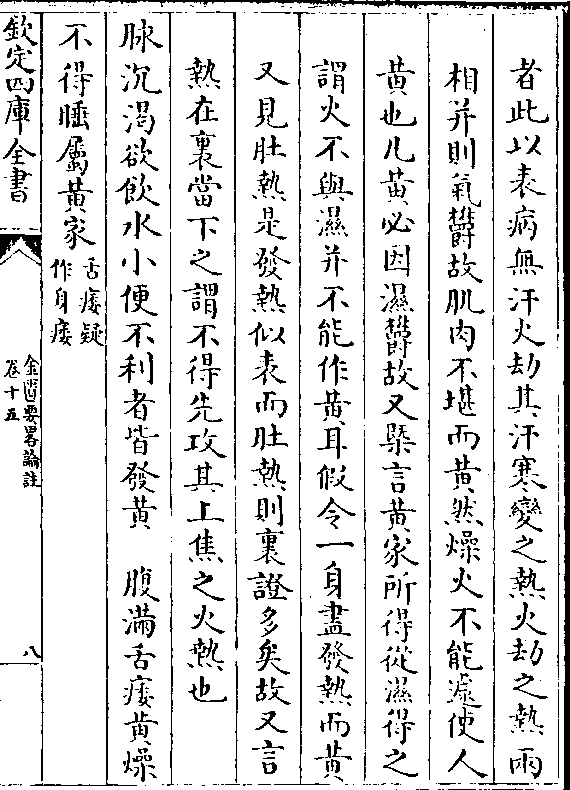 者此以表病無汗火劫其汗寒變之熱火劫之熱兩
相并則氣欝故肌肉不堪而黄然燥火不能遽使人
黄也凡黄必因濕欝故又槩言黄家所得從濕得之
謂火不與濕并不能作黄耳假令一身盡發熱而黄
又見肚熱是發熱似表而肚熱則裏證多矣故又言
熱在裏當下之謂不得先攻其上焦之火熱也
脉沉渴欲飲水小便不利者皆發黄 腹滿舌痿黄燥
不得睡屬黄家舌痿疑作身痿
欽定四庫全書
金匱要畧論註
卷十五
八